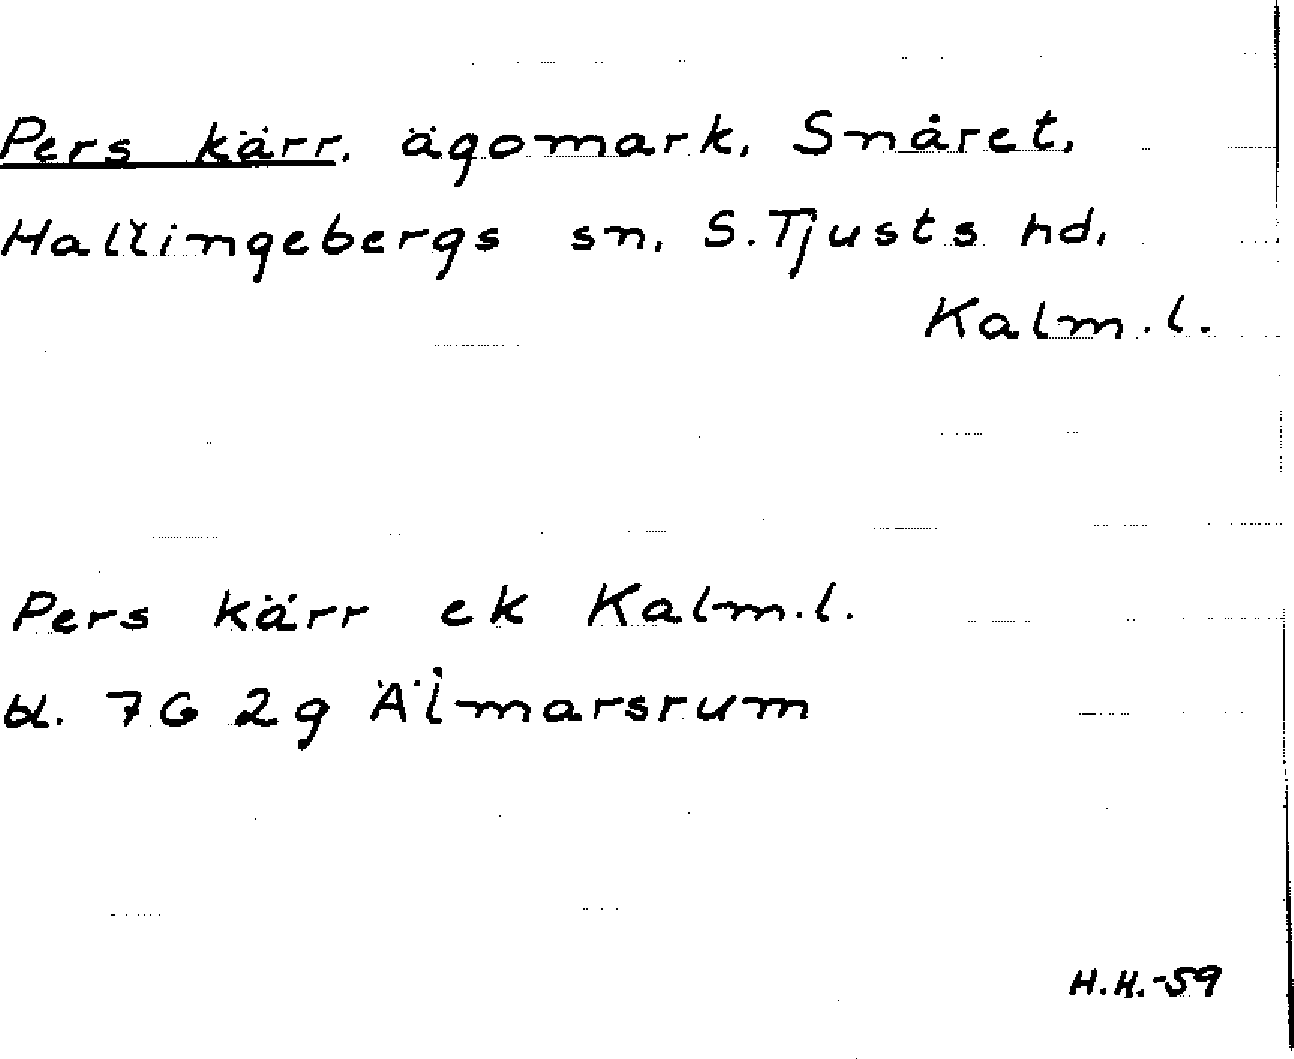 Pers kärr, ägomark, Snåret,
Hallingebergs sn, S. Tjusts hd,
Kalm. l.
Pers kärr ek Kalm. l.
bl. 7G 2g Älmarsrum
H.H.-59